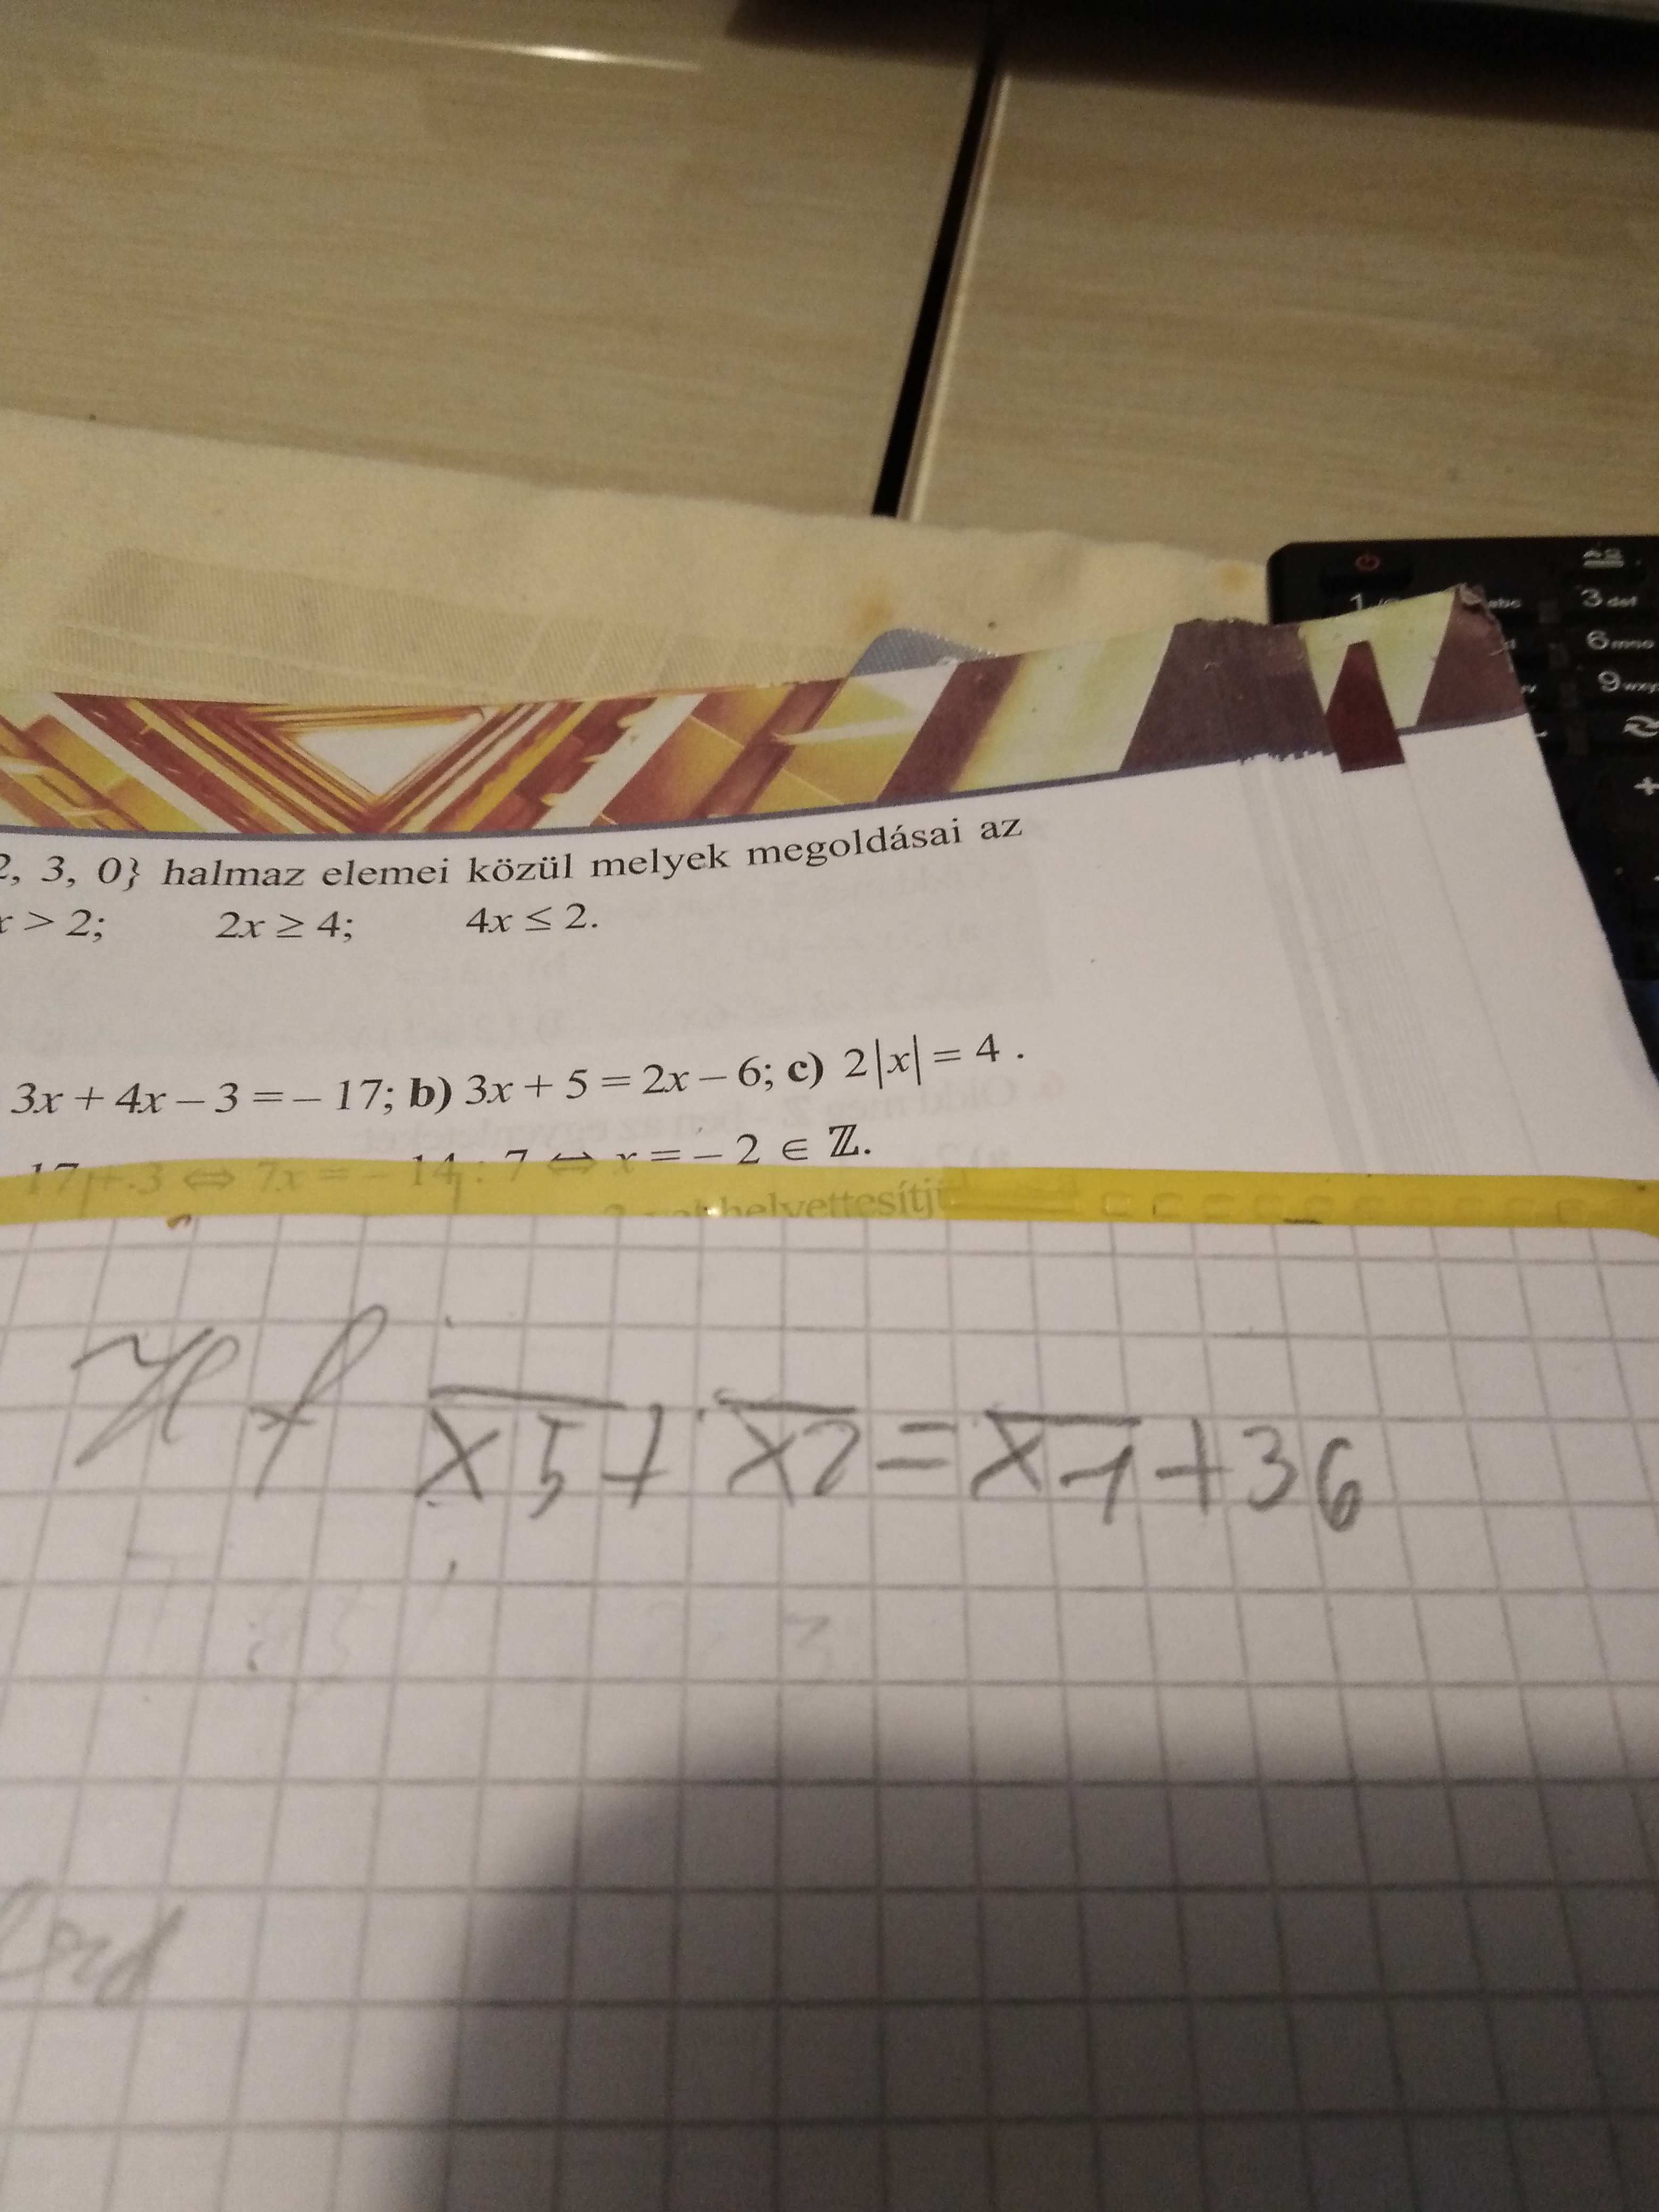 2, 3, 0} halmaz elemei közül melyek megoldásai az
x > 2; 2x ≥ 4; 4x ≤ 2.
3x + 4x – 3 = – 17; b) 3x + 5 = 2x – 6; c) 2|x| = 4 .
17 + 3 ⇔ 7x = – 14 : 7 ⇔ x = – 2 ∈ ℤ.
helyettesítj
Hf x̅5̅ + x̅2̅ = x̅1̅ + 36
1
abc
3 def
6 mno
9 wxy
+